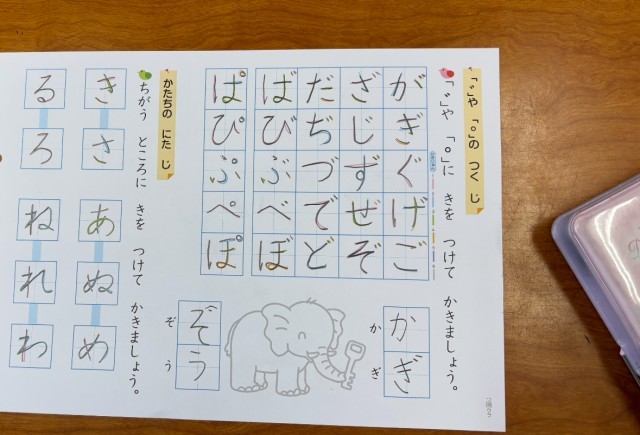 「゛」や 「゜」の つく じ
「゛」や 「゜」に きを つけて かきましょう。
がぎぐげご
ざじずぜぞ
だぢづでど
ばびぶべぼ
ぱぴぷぺぽ
かぎ
かぎ
ぞう
ぞう
かたちの にた じ
ちがう ところに きを つけて かきましょう。
きさ
あぬめ
るろ
ねれわ